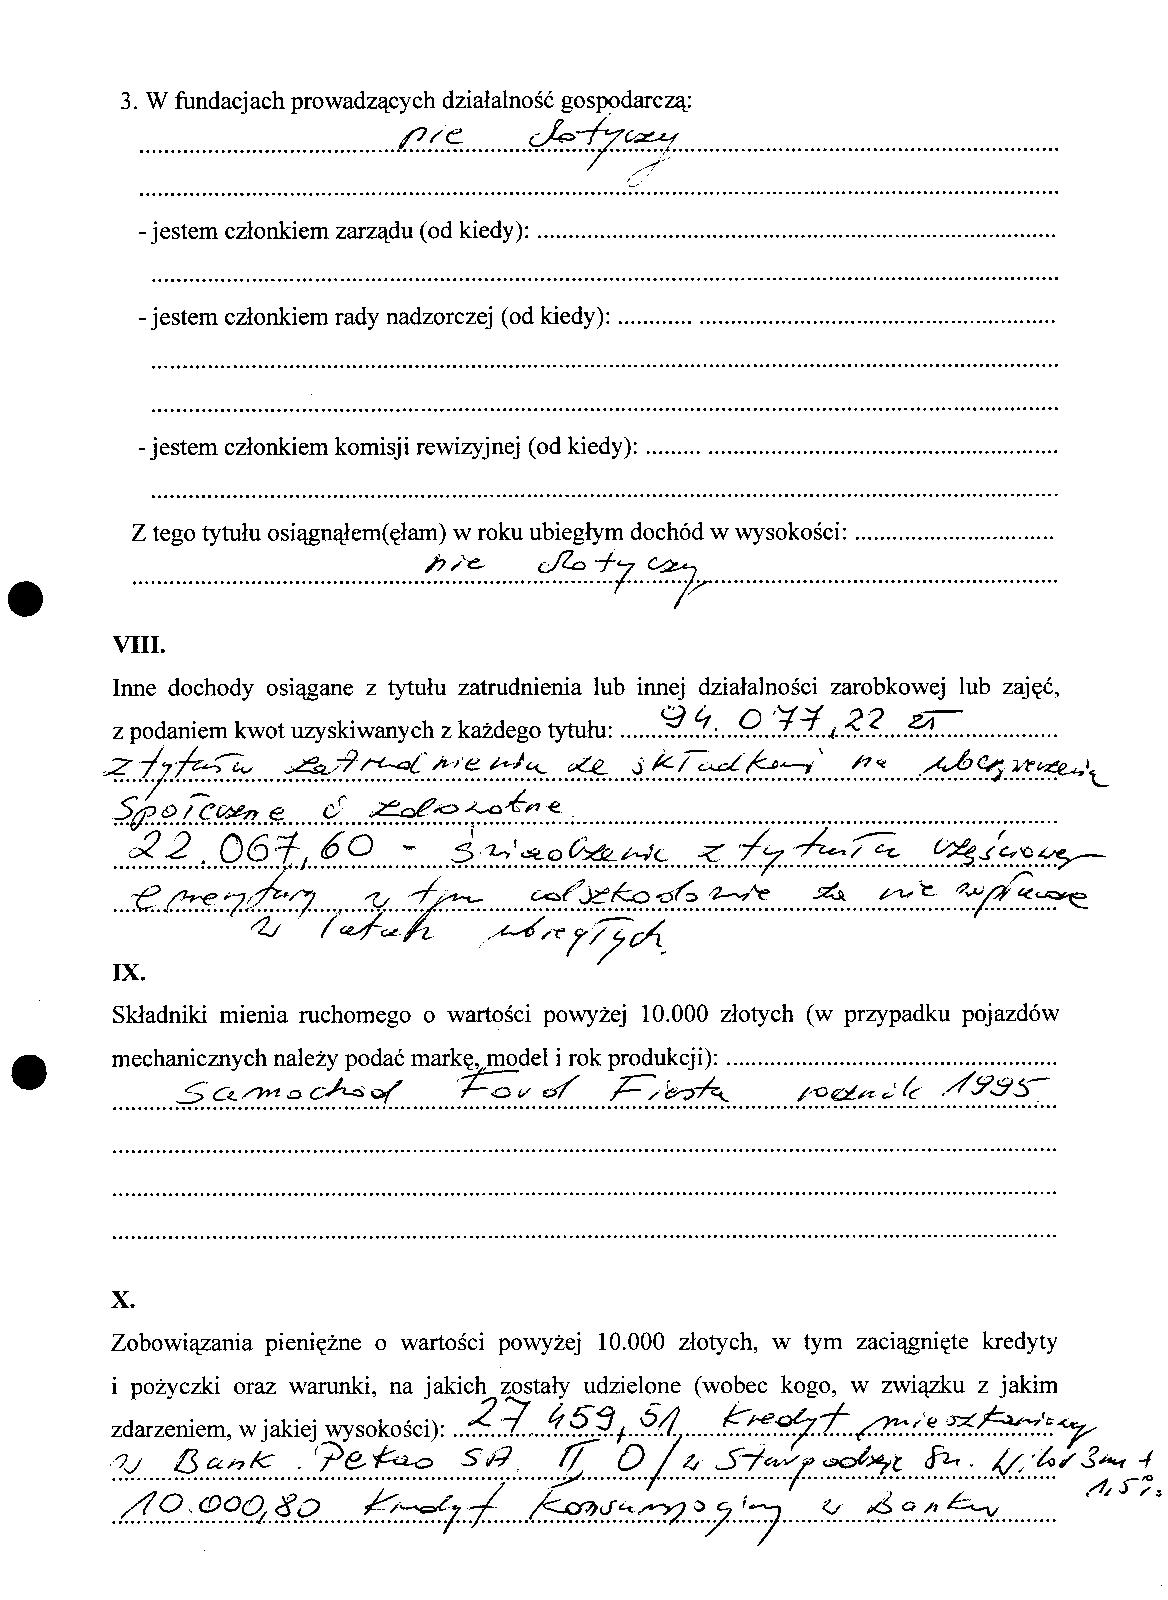 3. W fundacjach prowadzących działalność gospodarczą:
nie dotyczy
- jestem członkiem zarządu (od kiedy):
- jestem członkiem rady nadzorczej (od kiedy):
- jestem członkiem komisji rewizyjnej (od kiedy):
Z tego tytułu osiągnąłem(ęłam) w roku ubiegłym dochód w wysokości:
nie dotyczy
VIII.
Inne dochody osiągane z tytułu zatrudnienia lub innej działalności zarobkowej lub zajęć,
z podaniem kwot uzyskiwanych z każdego tytułu: 94.077,22 zł
z tytułu zatrudnienia ze składkami na ubezpieczenia
społeczne i zdrowotne
22.067,60 - świadczenie z tytułu częściowej
emerytury w tym odszkodowanie za nie
w latach ubiegłych.
IX.
Składniki mienia ruchomego o wartości powyżej 10.000 złotych (w przypadku pojazdów
mechanicznych należy podać markę, model i rok produkcji):
Samochód Ford Fiesta rocznik 1995
X.
Zobowiązania pieniężne o wartości powyżej 10.000 złotych, w tym zaciągnięte kredyty
i pożyczki oraz warunki, na jakich zostały udzielone (wobec kogo, w związku z jakim
zdarzeniem, w jakiej wysokości): 27 459,51 Kredyt mieszkaniowy
w Bank Pekao SA II O/w 3m +
1,5%
10.000,80 Kredyt Konsumpcyjny w Banku